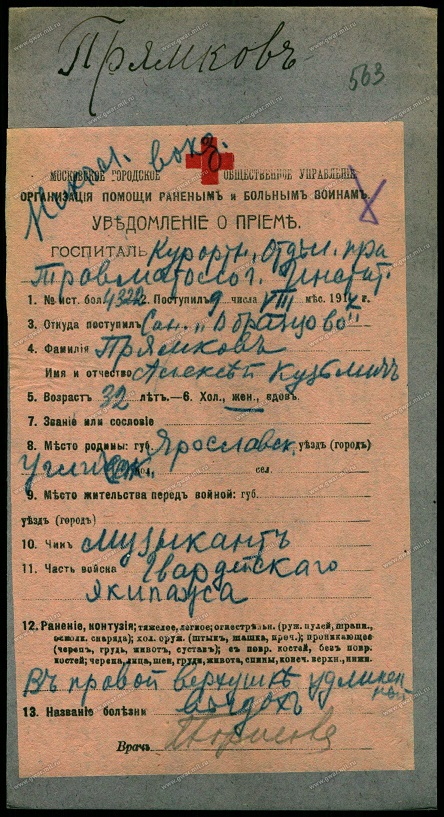 Прямковъ
563
МОСКОВСКОЕ ГОРОДСКОЕ ОБЩЕСТВЕННОЕ УПРАВЛЕНІЕ
ОРГАНИЗАЦІЯ ПОМОЩИ РАНЕНЫМЪ и БОЛЬНЫМЪ ВОИНАМЪ.
УВѢДОМЛЕНІЕ О ПРІЕМѢ.
ГОСПИТАЛЬ Курортн. отдѣл. при
Травматолог. Инстит.
1. № ист. бол. 4322 2. Поступилъ 9 числа VIII мѣс. 191 г.
3. Откуда поступилъ Сан. „Образцово"
4. Фамилія Прямковъ
Имя и отчество Алексѣй Кузьмичъ
5. Возрастъ 32 лѣтъ.—6. Хол., жен., вдов.
7. Званіе или сословіе
8. Мѣсто родины: губ. Ярославск. уѣздъ (городъ)
Углич вол. сел.
9. Мѣсто жительства передъ войной: губ.
уѣздъ (городъ)
10. Чинъ музыкантъ
11. Часть войска Гвардейскаго
Якипажа
12. Раненіе, контузія; тяжелое, легкое; огнестрѣльн. (руж. пулей, шрапн.,
осколк. снаряда); хол. оруж. (штыкъ, шашка, проч.); проникающее
(черепъ, грудь, животъ, суставъ); съ повр. костей, безъ повр.
костей; черепа, лица, шеи, груди, живота, спины, конеч. верхн., нижн.
Въ правой верхушкѣ удлинен
ный
13. Названіе болѣзни выдохъ
Врачъ